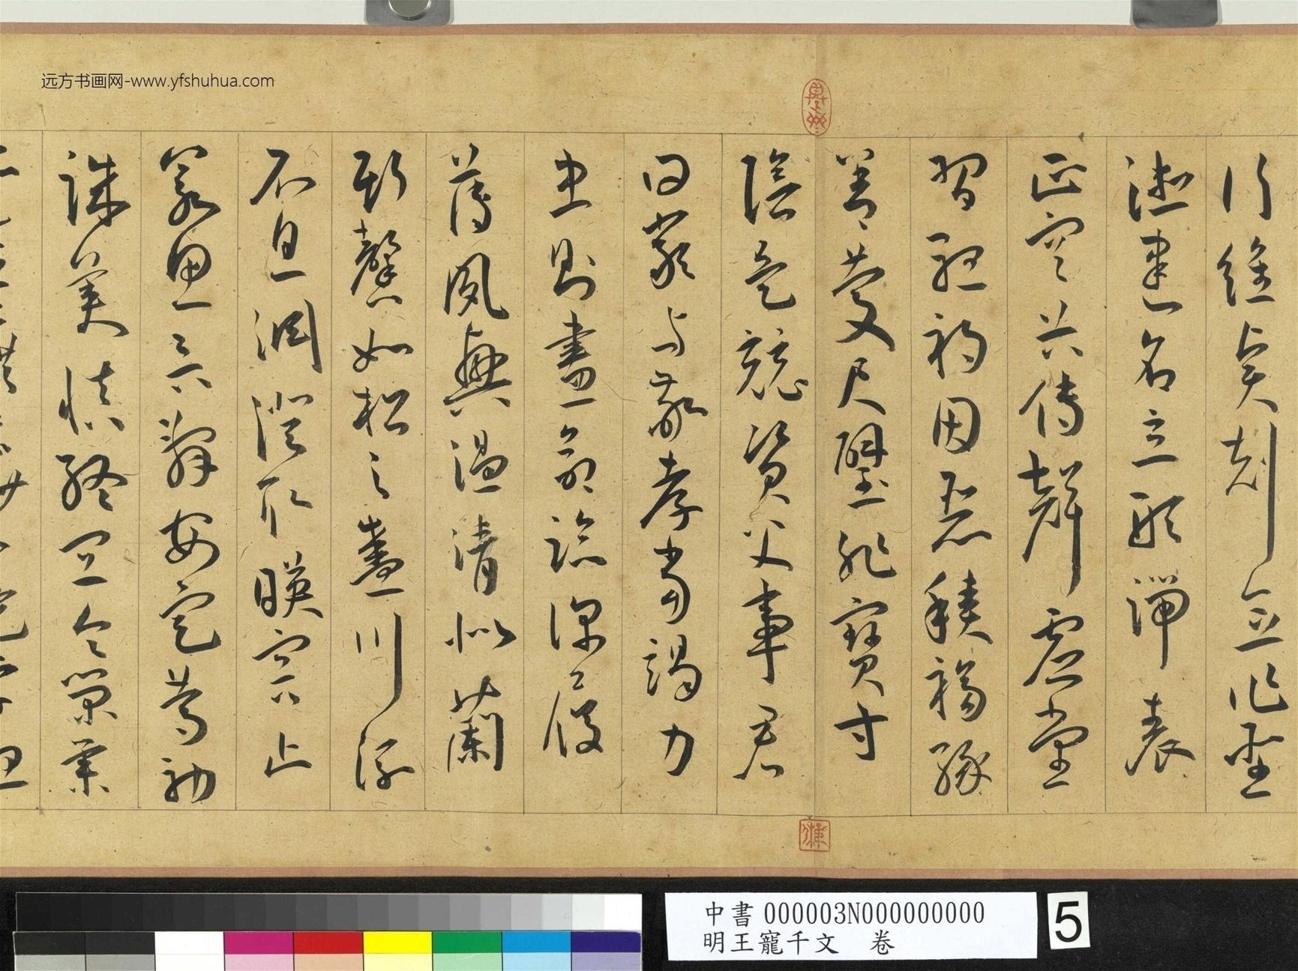 远方书画网-www.yfshuhua.com
行維賢剋念作聖
德建名立形端表
正空谷傳聲虛堂
習聽禍因惡積福緣
善慶尺璧非寶寸
陰是競資父事君
曰嚴與敬孝當竭力
忠則盡命臨深履
薄夙興溫清似蘭
斯馨如松之盛川流
不息淵澄取映容止
若思言辭安定篤初
誠美慎終宜令榮業
中書 000003N000000000
明王寵千文 卷
5